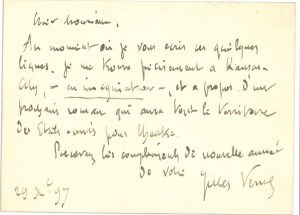 Cher Monsieur,
Au moment où je vous écris ces quelques
lignes, je me trouve précisément à Kansas-
City, – en imagination – et à propos d'un
prochain roman qui aura tout le territoire
des États-unis pour théâtre.
Recevez les compliments de nouvelle année
de votre Jules Verne
29 Xbre 97